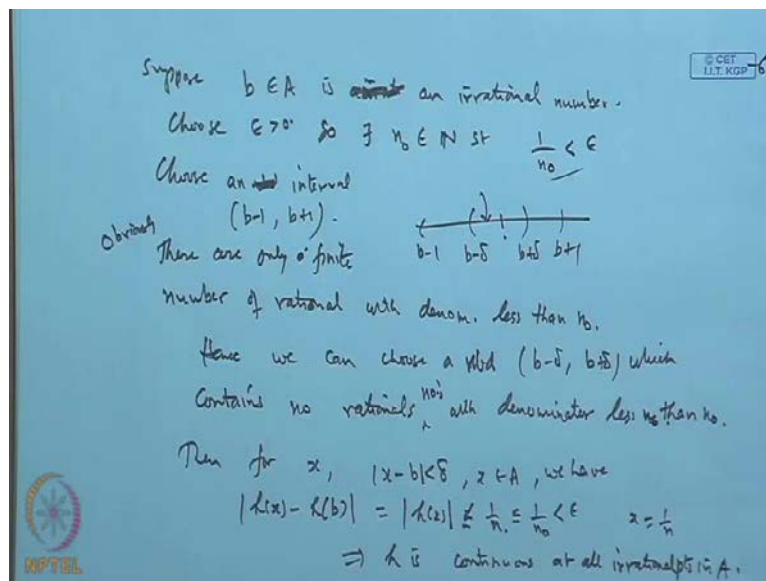 © CET
I.I.T. KGP
Suppose b ∈ A is an irrational number.
Choose ε > 0. So ∃ n₀ ∈ N st 1/n₀ < ε
Choose an interval
(b-1, b+1).
b-1 b-δ b+δ b+1
Obviously There are only a finite
number of rational with denom. less than n₀.
Hence we can choose a nbd (b-δ, b+δ) which
Contains no rationals no's with denominator less than n₀.
Then for x, |x-b|<δ, x ∈ A, we have
|h(x) - h(b)| = |h(x)| ≤ 1/n ≤ 1/n₀ < ε
⇒ h is continuous at all irrational pts in A.
NPTEL